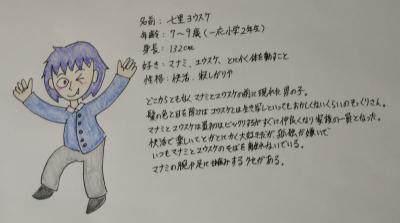 名前：七里ヨウスケ
年齢：7〜9歳（一応小学2年生）
身長：132cm
好き：マナミ、ユウスケ、とにかく体を動かすこと
性格：快活、寂しがりや
どこからともなくマナミとユウスケの前に現れた男の子。
髪の色と目を除けばユウスケとは生き写しといってもおかしくないくらいのそっくりさん。
マナミとユウスケは最初はビックリするがすぐに仲良くなり家族の一員となった。
快活で楽しいことがとにかく大好きだが、孤独が嫌いで
いつもマナミとユウスケのそばを離れないでいる。
マナミの腕や足にしがみつくクセがある。